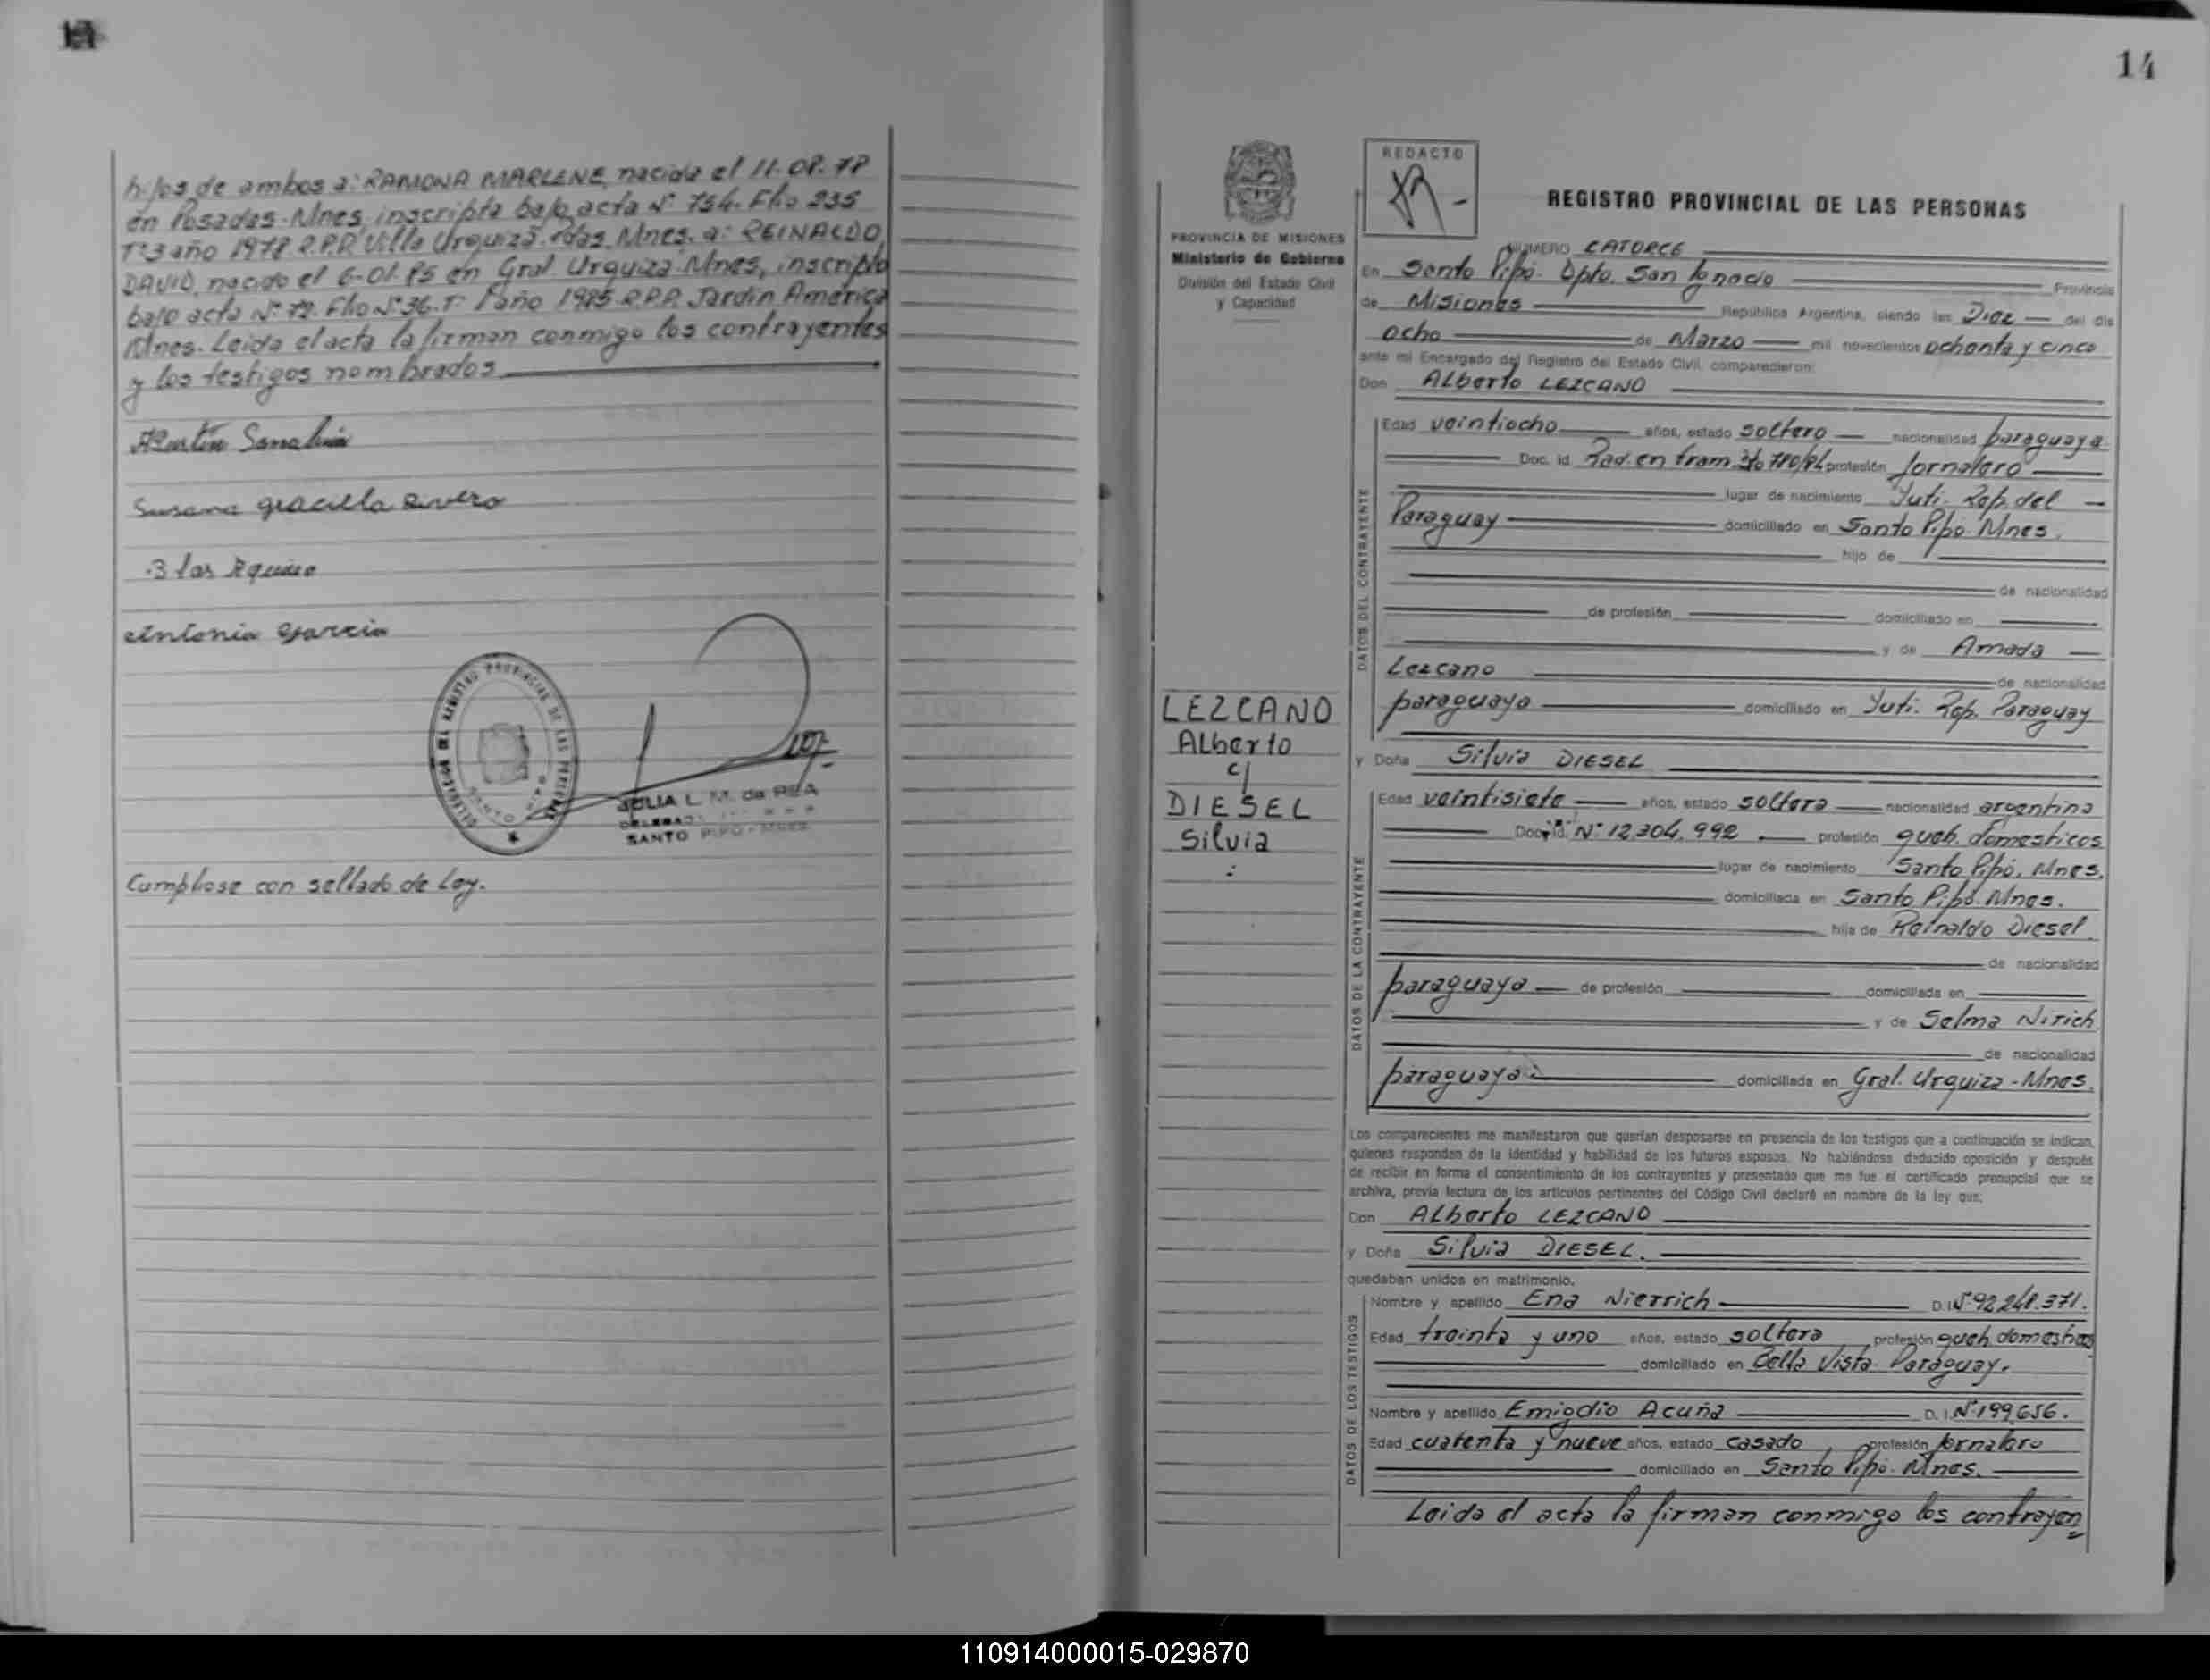 hijos de ambos a: RAMONA MARLENE, nacida el 11-08-78
en Posadas-Mnes, inscripta bajo acta Nº 754. Flio 235
Tº 3 año 1978 R.P.P. Villa Urquiza. Pdas. Mnes. a: REINALDO
DAVID, nacido el 6-01-85 en Gral. Urquiza-Mnes, inscripto
bajo acta Nº 72. Flio Nº 36. Tº 1 año 1985 R.P.P. Jardín América
Mnes. Leida el acta la firman conmigo los contrayentes
y los testigos nombrados
Susana graciela Rivero
Blas Aquino
Antonia Garcia
DELEGACION DEL REGISTRO PROVINCIAL DE LAS PERSONAS
SANTO PIPO
JULIA L. M. de REA
DELEGADA
SANTO PIPO - MNES
Cumplose con sellado de Ley.
14
PROVINCIA DE MISIONES
Ministerio de Gobierno
División del Estado Civil
y Capacidad
REDACTO
REGISTRO PROVINCIAL DE LAS PERSONAS
NUMERO CATORCE
En Santo Pipó. Dpto. San Ignacio Provincia
de Misiones República Argentina, siendo las Diez del día
ocho de Marzo mil novecientos ochenta y cinco
ante mi Encargado del Registro del Estado Civil, comparecieron:
Don Alberto LEZCANO
DATOS DEL CONTRAYENTE
Edad veintiocho años, estado soltero nacionalidad paraguaya
Doc. id. Rad. en tram. 780/84 profesión Jornalero
lugar de nacimiento Yuti- Rep. del
Paraguay domiciliado en Santo Pipó. Mnes.
hijo de
de nacionalidad
de profesión domiciliado en
y de Amada
Lezcano de nacionalidad
paraguaya domiciliado en Yuti. Rep. Paraguay
LEZCANO
Alberto
c/
DIESEL
Silvia
y Doña Silvia DIESEL
DATOS DE LA CONTRAYENTE
Edad veintisiete años, estado soltera nacionalidad argentina
Doc. id. Nº 12.304.992 profesión queh. domesticos
lugar de nacimiento Santo Pipó. Mnes.
domiciliada en Santo Pipó. Mnes.
hija de Reinaldo Diesel
de nacionalidad
paraguaya de profesión domiciliada en
y de Selma Nirich
de nacionalidad
paraguaya domiciliada en Gral. Urquiza-Mnes.
Los comparecientes me manifestaron que querían desposarse en presencia de los testigos que a continuación se indican,
quienes responden de la identidad y habilidad de los futuros esposos. No habiéndose deducido oposición y después
de recibir en forma el consentimiento de los contrayentes y presentado que me fue el certificado prenupcial que se
archiva, previa lectura de los artículos pertinentes del Código Civil declaré en nombre de la ley que:
Don Alberto LEZCANO
y Doña Silvia DIESEL.
quedaban unidos en matrimonio.
DATOS DE LOS TESTIGOS
Nombre y apellido Ena Nierrich D.I. Nº 92.248.371.
Edad treinta y uno años, estado soltera profesión queh. domesticos
domiciliado en Bella Vista- Paraguay.
Nombre y apellido Emigdio Acuña D.I. Nº 199.656.
Edad cuarenta y nueve años, estado casado profesión Jornalero
domiciliado en Santo Pipó. Mnes.
Leida el acta la firman conmigo los contrayen
110914000015-029870